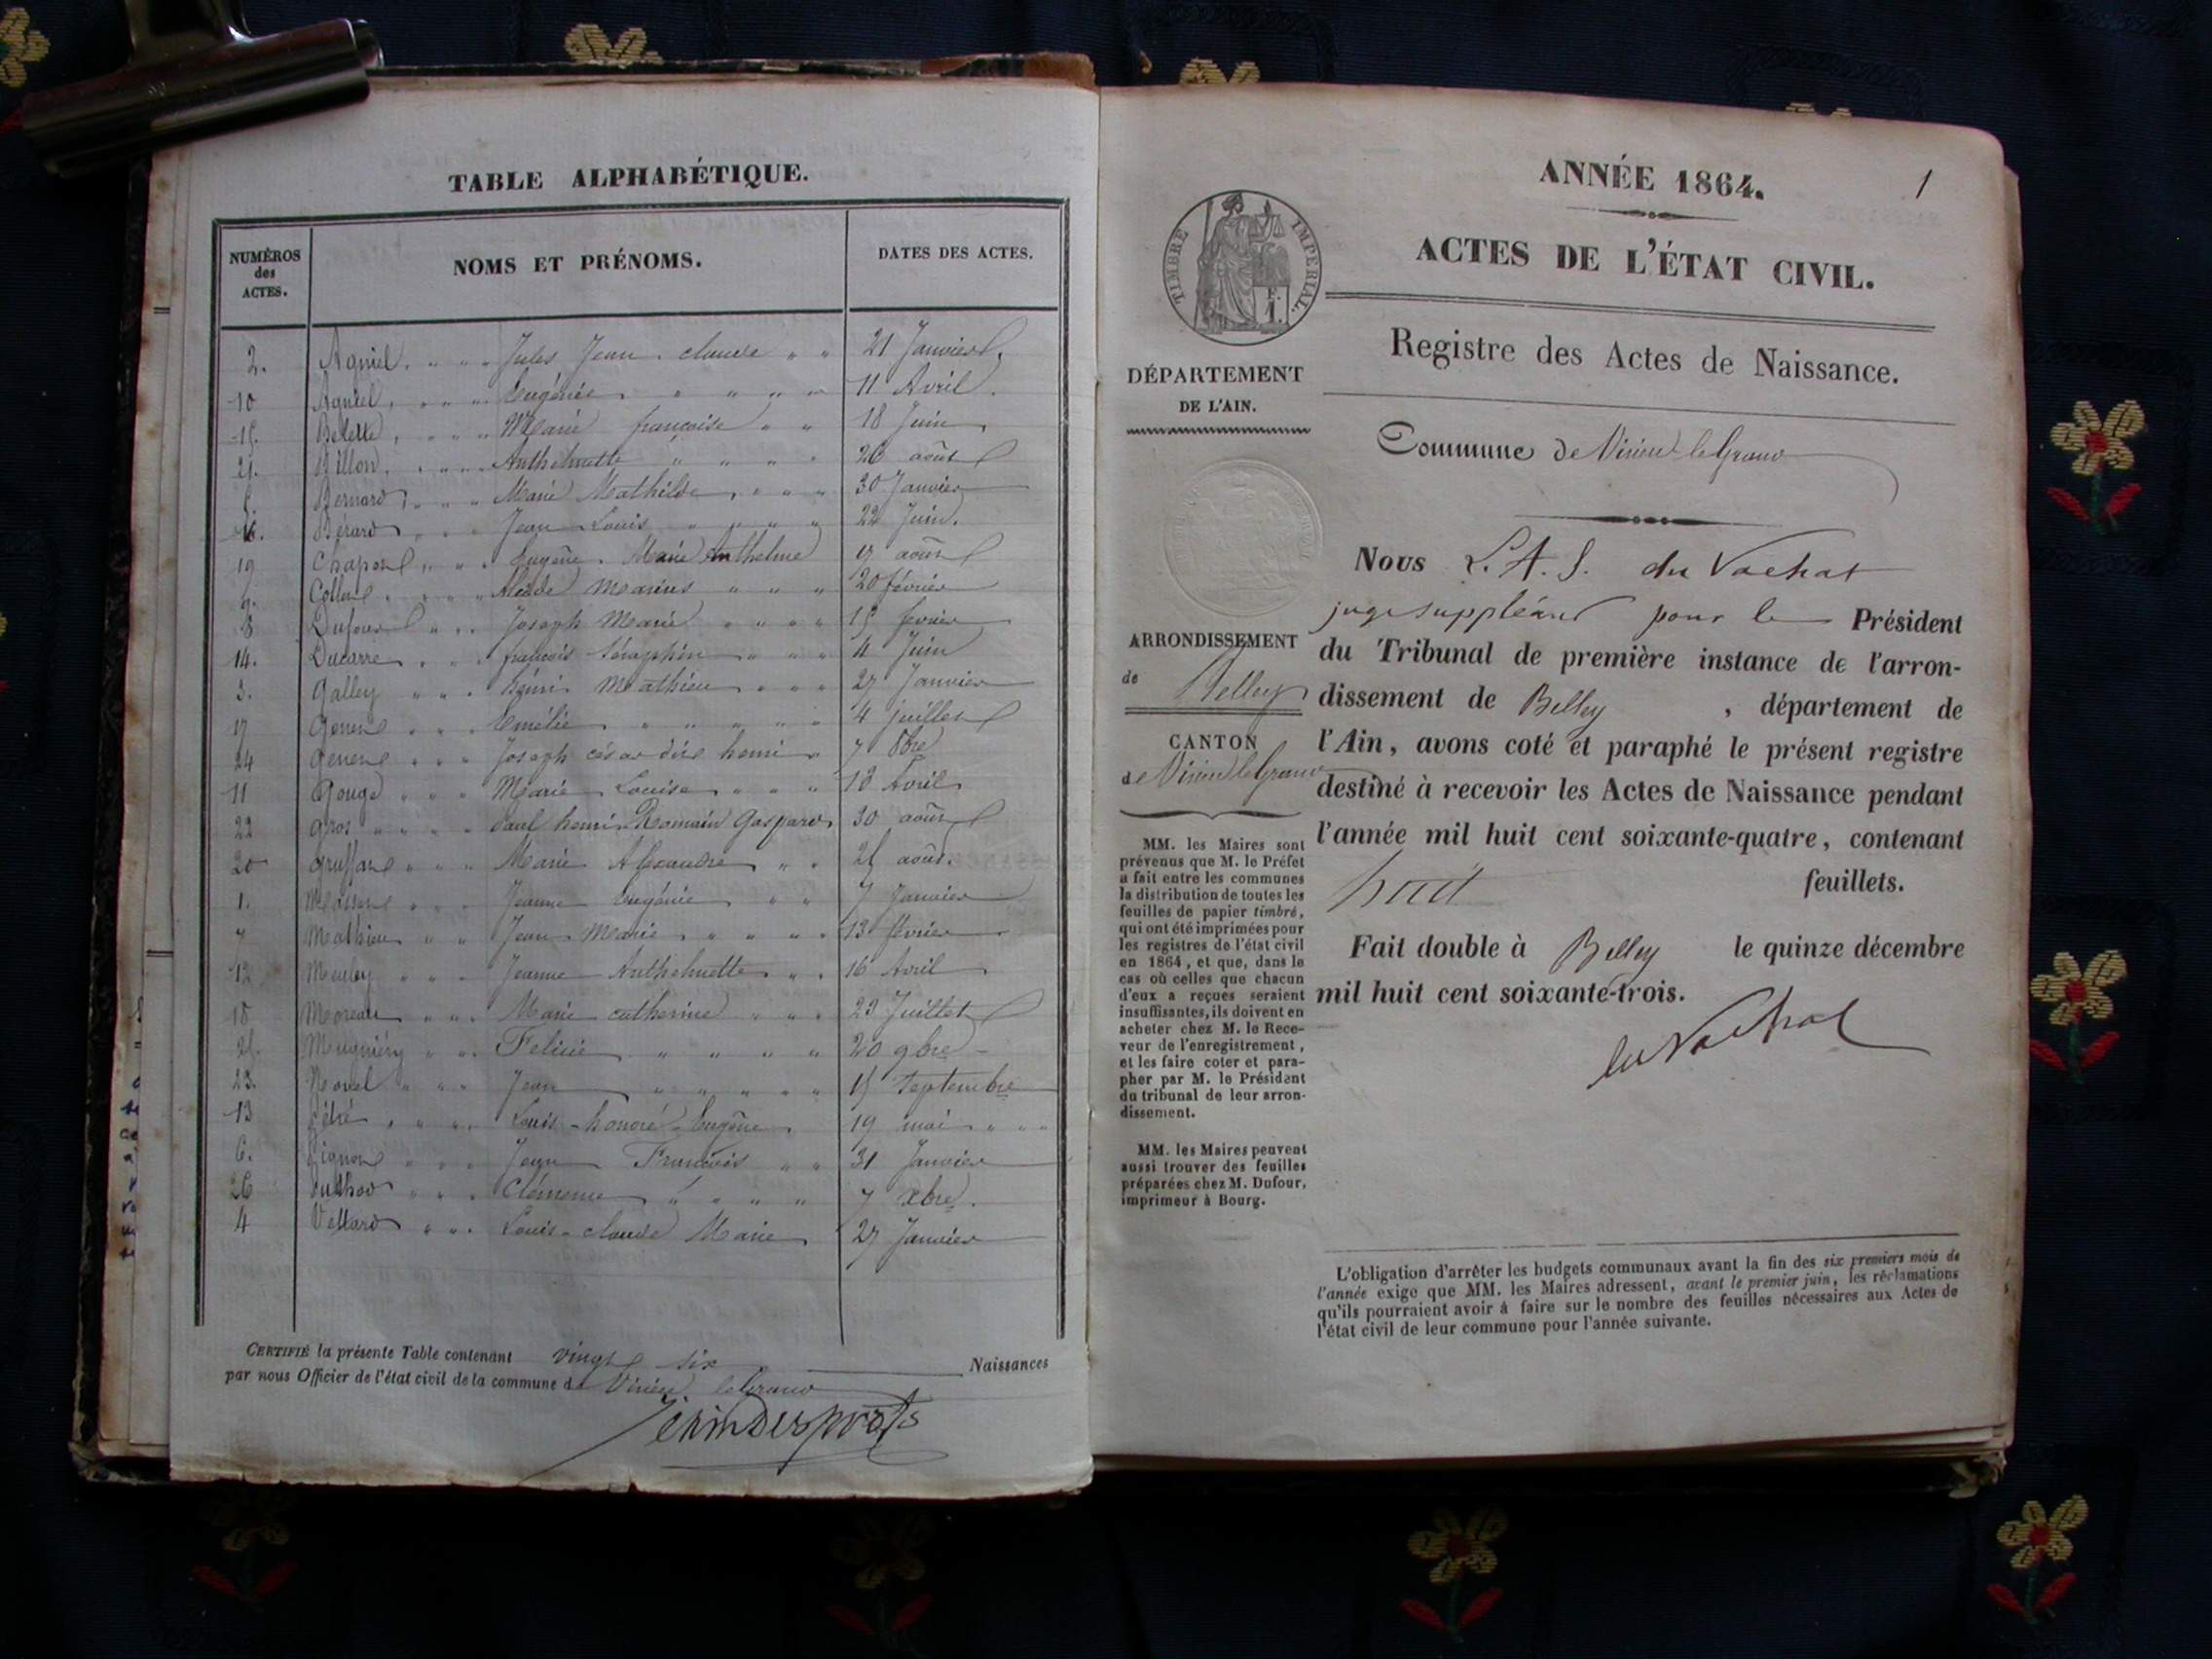 TABLE ALPHABÉTIQUE.
NUMÉROS des ACTES. NOMS ET PRÉNOMS. DATES DES ACTES.
2. Agniel Jules Jean claude 21 Janvier
10 Agniel Eugénie 11 Avril
15. Marie françoise 18 Juin
21. Billon Anthelmette 26 août
5. Bernard Marie Mathilde 30 Janvier
16. Bérard Jean Louis 22 Juin.
19 Chapon Eugène Marie Anthelme 17 août
9. Collet Marius 20 février
8 Dufour Joseph Marie 15 fevrier
14. Ducarre françois Séraphin 4 Juin
3. Galley hénri Mathieu 27 Janvier
17 Genen Emélie 4 juillet
24 Genen Joseph césar dit henri 7 8bre
11 Gouge Marie Louise 13 Avril
22 Gros Paul henri Romain Gaspard 30 août
20 Marie Alexandre 25 août.
1. Jeanne Eugénie 7 Janvier
7 Mathieu Jean Marie 13 février
12 Jeanne Anthelmette 16 Avril
18 Moreau Marie catherine 23 Juillet
25. Mugniéry Felicie 20 9bre
23. Novel Jean 15 Septembre
13 Louis-honoré-Eugène 19 mai
6. Pignon Jean François 31 Janvier
26 Clémence 7 xbre.
4 Vettard Louis-claude Marie 27 Janvier
CERTIFIÉ la présente Table contenant vingt six Naissances
par nous Officier de l'état civil de la commune de Virieu le Grand
ANNÉE 1864. 1
ACTES DE L'ÉTAT CIVIL.
TIMBRE IMPÉRIAL.
F. 1.
Registre des Actes de Naissance.
DÉPARTEMENT
DE L'AIN.
Commune de Virieu-le-Grand
ARRONDISSEMENT
de Belley
CANTON
de Virieu le Grand
Nous L. A. S. du Vachat
juge suppléant pour le Président
du Tribunal de première instance de l'arron-
dissement de Belley, département de
l'Ain, avons coté et paraphé le présent registre
destiné à recevoir les Actes de Naissance pendant
l'année mil huit cent soixante-quatre, contenant
huit feuillets.
Fait double à Belley le quinze décembre
mil huit cent soixante-trois.
du Vachat
MM. les Maires sont
prévenus que M. le Préfet
a fait entre les communes
la distribution de toutes les
feuilles de papier timbré,
qui ont été imprimées pour
les registres de l'état civil
en 1864, et que, dans le
cas où celles que chacun
d'eux a reçues seraient
insuffisantes, ils doivent en
acheter chez M. le Rece-
veur de l'enregistrement,
et les faire coter et para-
pher par M. le Président
du tribunal de leur arron-
dissement.
MM. les Maires peuvent
aussi trouver des feuilles
préparées chez M. Dufour,
imprimeur à Bourg.
L'obligation d'arrêter les budgets communaux avant la fin des six premiers mois de
l'année exige que MM. les Maires adressent, avant le premier juin, les réclamations
qu'ils pourraient avoir à faire sur le nombre des feuilles nécessaires aux Actes de
l'état civil de leur commune pour l'année suivante.